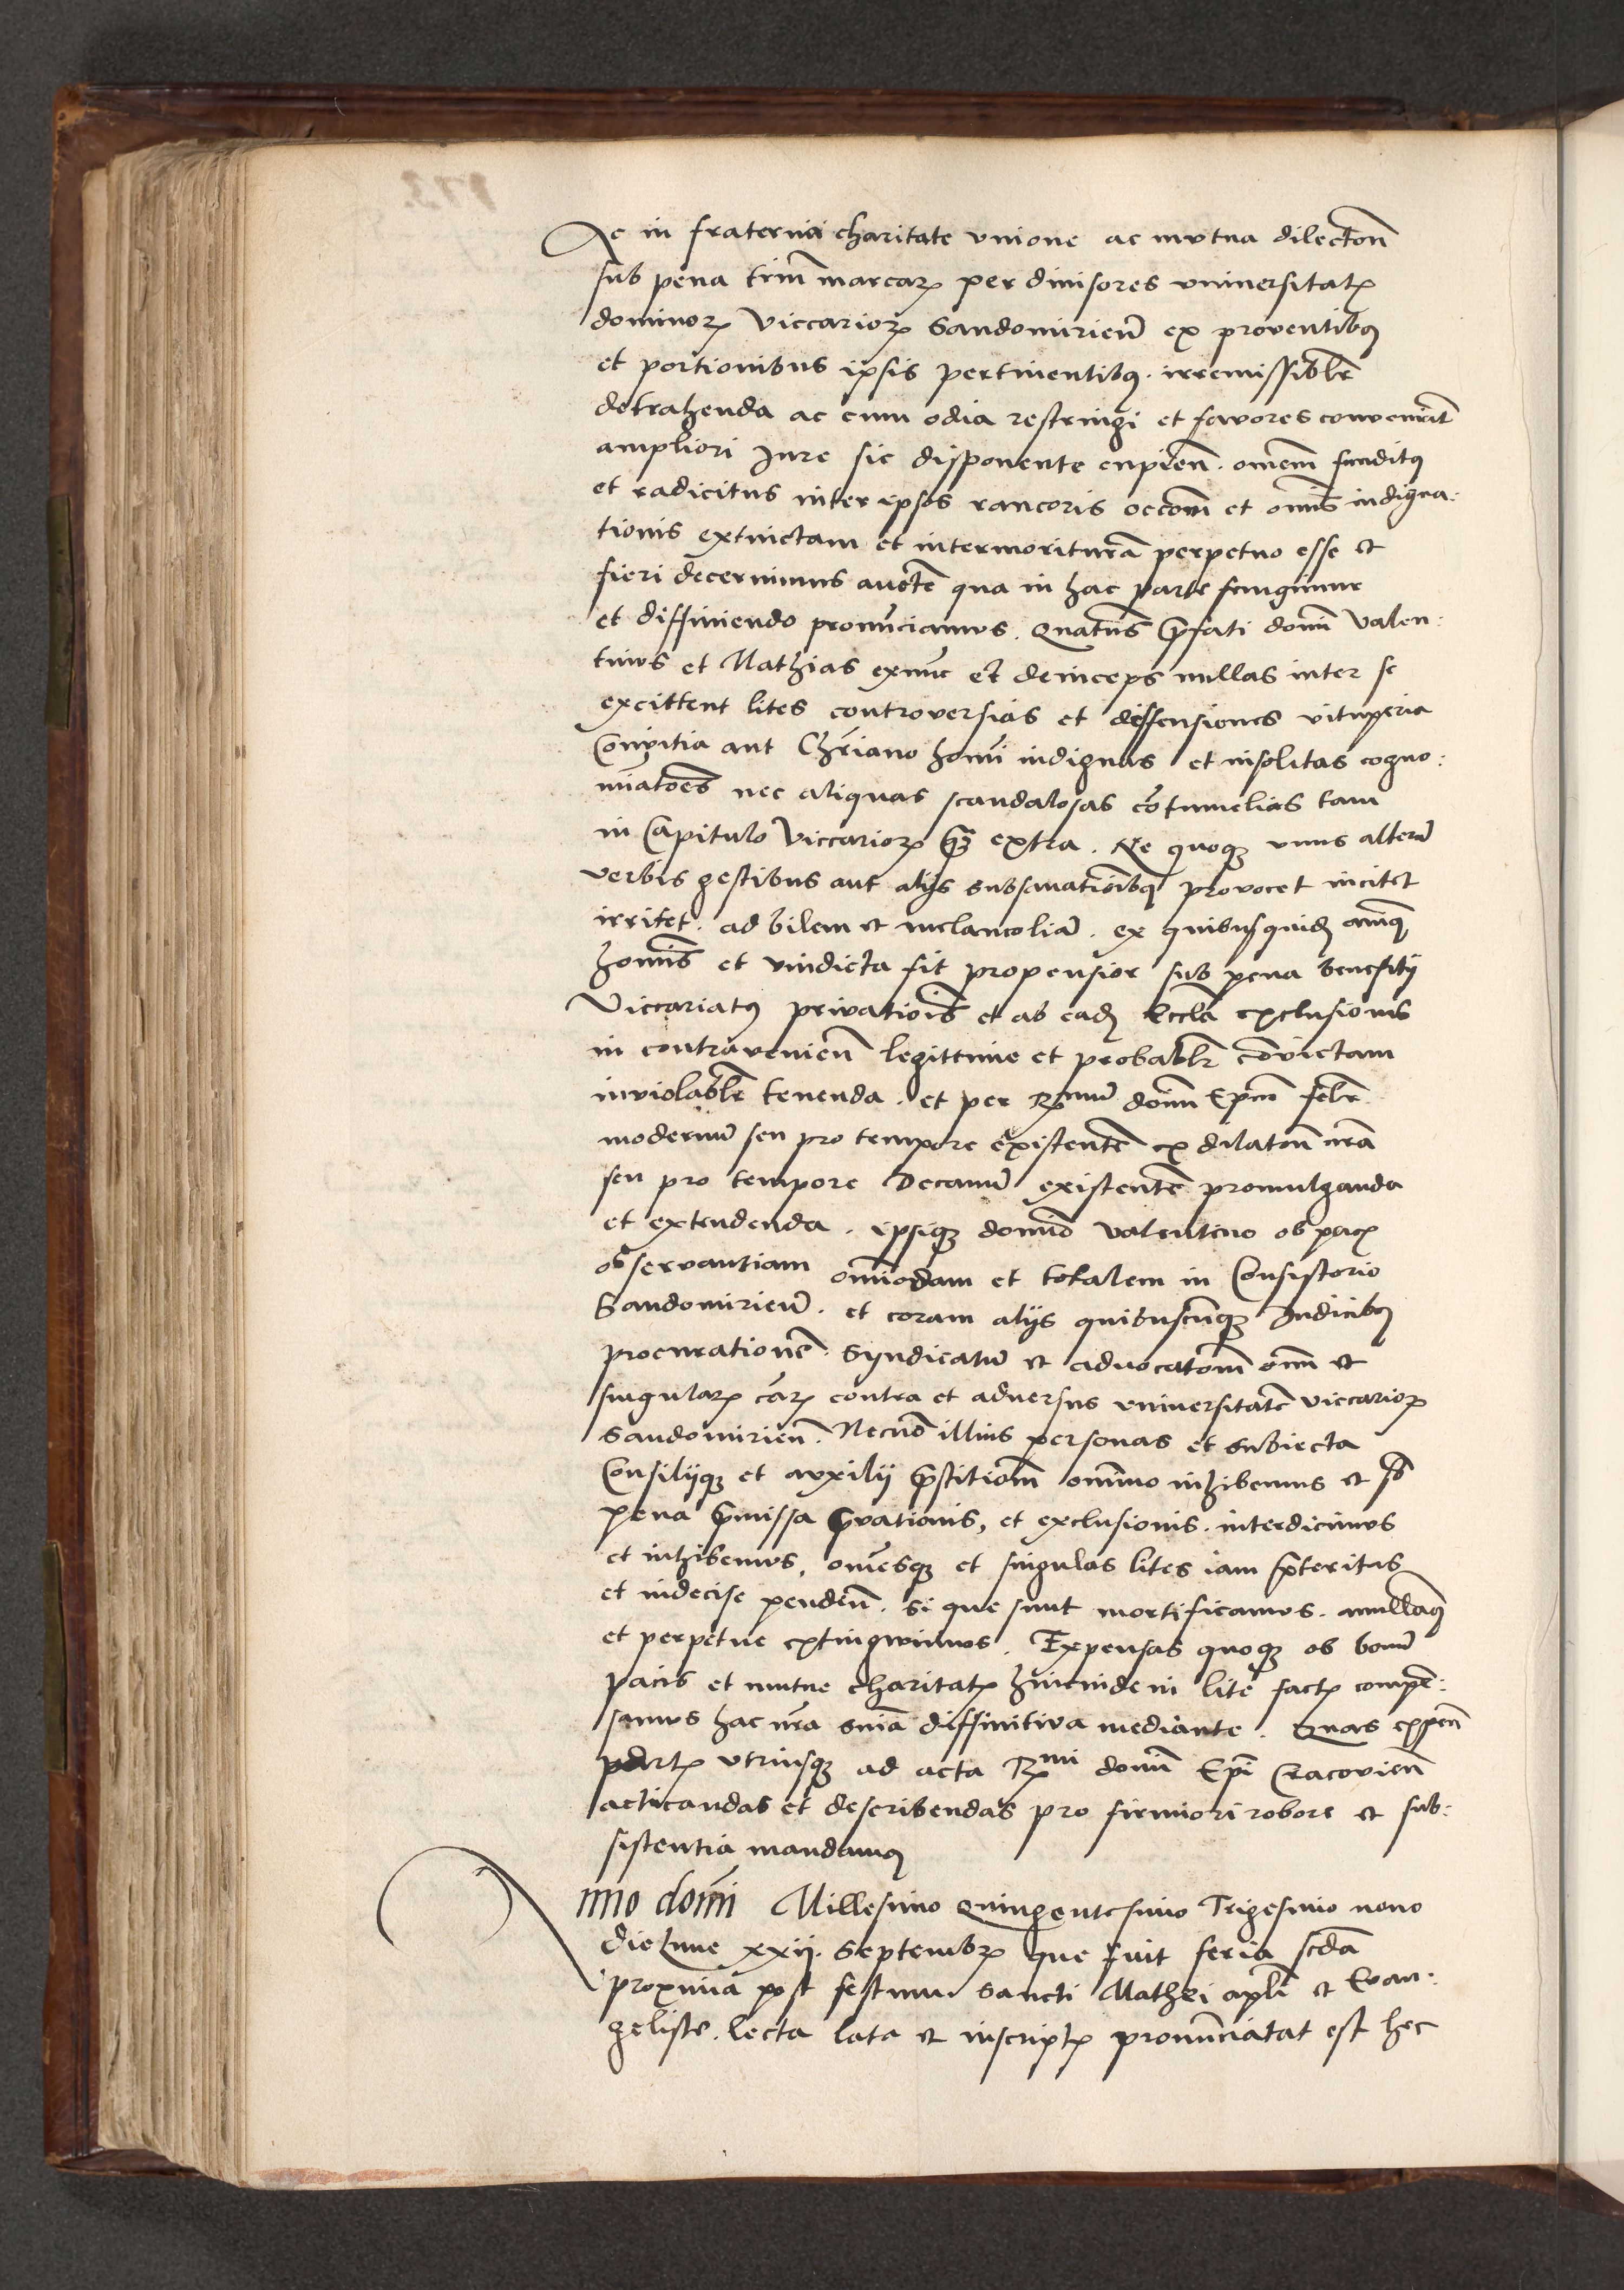 Ac in fraterna charitate vnione ac mutua dilectioñ
sub pena trium marcarꝝ per diuisores vniuersitatꝭ
dominorꝝ viccariorꝝ Sandomirieñ ex proventibꝰ
et portionibus ipsis pertinentibꝰ. irremissiblr̃
detrahenda ac cum odia restringi et favores convenirit
ampliori Jure sic disponente cupień. omem̃ funditꝰ
et radicitus inter ipsos rancoris occom̃ et omis̃ indigna:
tionis extinctam et intermorituram̃ perpetuo esse et
fieri decernimus auctẽ qua in hac parte fungimur
et diffiniendo pronũciamus. Quatñs p̃fati domĩ Valen:
tinus et Mathias exnũc et deinceps nullas inter se
excittent lites controversias et dissensiones vituperia
Convitia aut Chr̃iano homĩ indignas et insolitas cogno:
miatoẽs nec aliquas scandalosas cõtumelias tam
in Capitulo viccariorꝝ q̃ꝫ extra. Ne quoqꝫ vnus alterũ
verbis gestibus aut alijs subsanationibꝰ provocet incitet
irritet. ad bilem et melancoliã. ex quibusquidꝫ animꝰ
homis̃ et vindicta fit propensior sub pena beneficij
Viccariatꝰ privationis̃ et ab eadꝫ Eccla exclusionis
in contravenień legittime et probablr̃ cõvictam
inviolablr̃ tenenda. et per Rmũ domĩ Epm̃
modernũ seu pro tempore existentẽ ex dilatioñ nr̃a
seu pro tempore Decanũ existentẽ promulganda
et extendenda. ipsiqꝫ domĩo Valentino ob pacꝭ
observantiam omĩodam et totalem in Consistorio
Sandomirieñ. et coram alijs quibuscũqꝫ Iudicibꝰ
procurationẽ. Syndicatũ et aduocatom̃ om̃i et
singularꝝ cãrꝝ contra et aduersus vniuersitatẽ viccariorꝝ
Sandomirień. Necnõ illius personas et subiecta
Consilijqꝫ et auxilij p̃stitiom̃ omĩno inhibemus et sb̃
pena p̃missa p̃vationis, et exclusionis. interdicimus
et inhibemus, omẽsqꝫ et singulas lites iam p̃teritas
et indecise pendeñ. si que sunt mortificamus. anullamꝰ
et perpetue extingwimus. Expensas quoqꝫ ob bonũ
pacis et mutue charitatꝭ hincinde in lite factꝭ compẽ:
samus hac nr̃a sñia diffinitiva mediante. Quas expeñ
partꝭ vtriusqꝫ ad acta Rmi domĩ Epĩ Cracovień
acticandas et describendas pro firmiori robore et sub:
sistentia mandamꝰ
Anno domĩ Millesimo Quingentesimo Trigesimo nono
die Lune xxij. Septembrꝭ que fuit feria scd̃a
proxima post festum sancti Mathei apli et Evan:
geliste. lecta lata et inscriptꝭ pronũciatat est hec